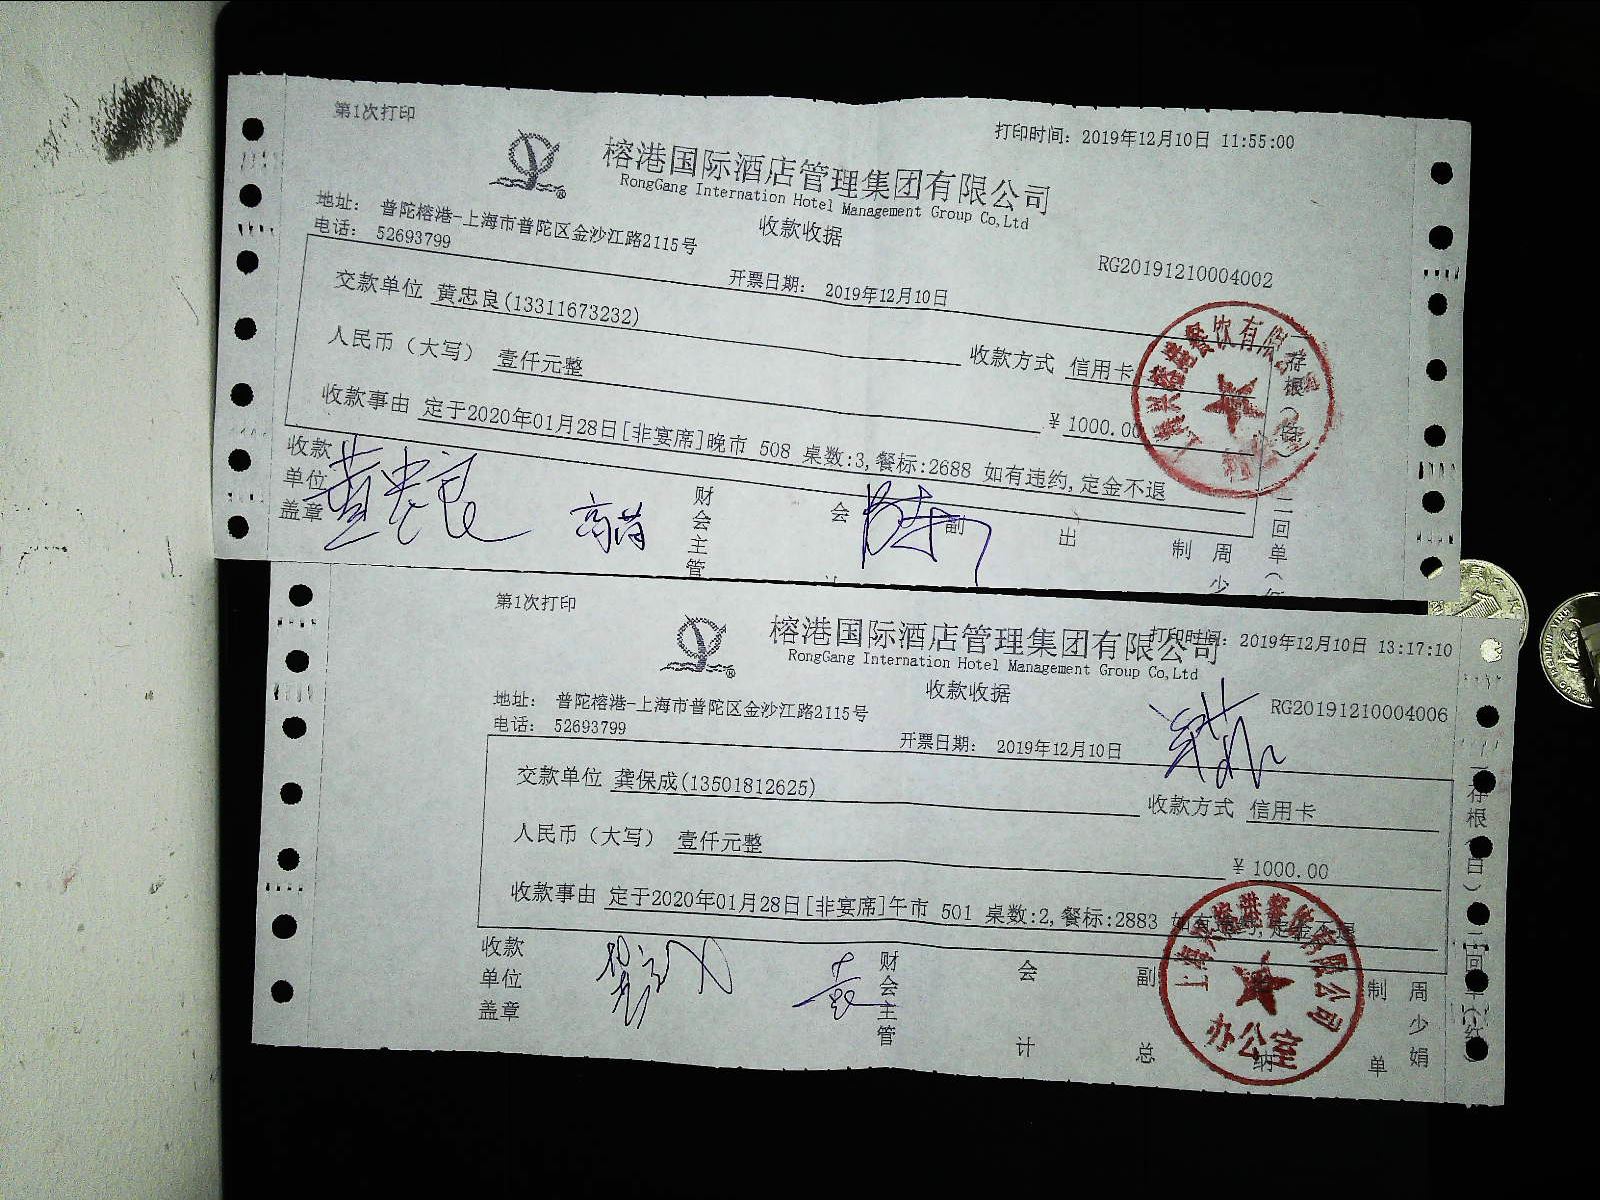 第1次打印
打印时间: 2019年12月10日 11:55:00
榕港国际酒店管理集团有限公司
RongGang Internation Hotel Management Group Co,Ltd
地址: 普陀榕港-上海市普陀区金沙江路2115号
收款收据
电话: 52693799
RG20191210004002
开票日期: 2019年12月10日
交款单位 黄忠良(13311673232)
收款方式 信用卡
人民币（大写） 壹仟元整
¥ 1000.00
收款事由 定于2020年01月28日[非宴席]晚市 508 桌数:3,餐标:2688 如有违约,定金不退
收款单位盖章
黄忠良
财会主管
会
副
出
制
周少
存根
二回单
餐饮有限
第1次打印
打印时间: 2019年12月10日 13:17:10
榕港国际酒店管理集团有限公司
RongGang Internation Hotel Management Group Co,Ltd
收款收据
地址: 普陀榕港-上海市普陀区金沙江路2115号
RG20191210004006
电话: 52693799
开票日期: 2019年12月10日
交款单位 龚保成(13501812625)
收款方式 信用卡
人民币（大写） 壹仟元整
¥ 1000.00
收款事由 定于2020年01月28日[非宴席]午市 501 桌数:2,餐标:2883 如有违约,定金不退
收款单位盖章
财会主管
会计
副总
纳
制单
周少娟
存根
上海兴榕港餐饮有限公司
办公室